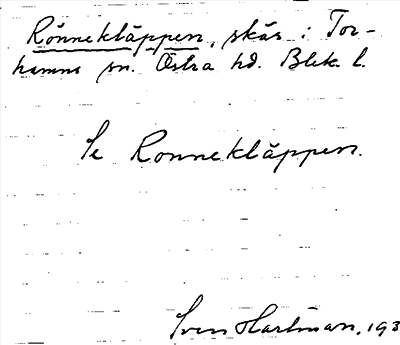 Rönnekläppen, skär i Tor-
hamns sn. Östra hd. Blek. l.
Se Ronnekläppen.
Sven Hartman, 193